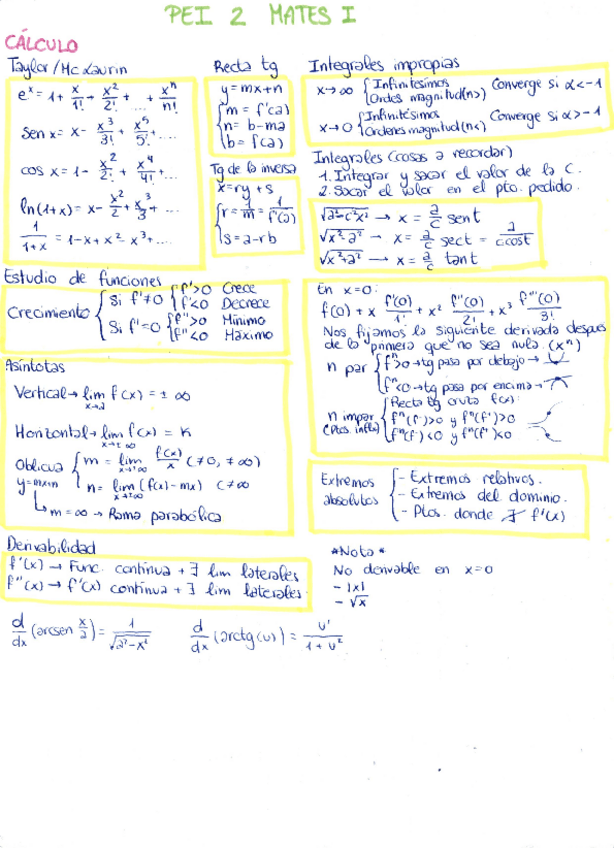 PEI 2 MATES I
CÁLCULO
Taylor/Mc Laurin
e^x = 1 + x/1! + x²/2! + ... + x^n/n!
sen x = x - x³/3! + x⁵/5! + ...
cos x = 1 - x²/2! + x⁴/4! + ...
ln(1+x) = x - x²/2 + x³/3 + ...
1/(1+x) = 1 - x + x² - x³ + ...
Recta tg
y = mx + n
m = f'(a)
n = b - ma
b = f(a)
Tg de la inversa
x = ry + s
r = 1/m = 1/f'(a)
s = a - rb
Integrales impropias
x→∞ { Infinitésimos
Ordes magnitud (n>) Converge si α < -1
x→0 { Infinitésimos
Ordenes magnitud (n<) Converge si α > -1
Integrales (cosas a recordar)
1. Integrar y sacar el valor de la C.
2. Sacar el valor en el pto. pedido.
√(a²-c²x²) → x = a/c sent
√(x²-a²) → x = a/c sect = a/(c cost)
√(x²+a²) → x = a/c tant
Estudio de funciones
Crecimiento { Si f'≠0 { f'>0 Crece
f'<0 Decrece
Si f'=0 { f''>0 Mínimo
f''<0 Máximo
En x=0:
f(0) + x f'(0)/1! + x² f''(0)/2! + x³ f'''(0)/3!
Nos fijamos la siguiente derivada despues
de la primera que no sea nula. (x^n)
n par { f^n>0 → tg pasa por debajo →
f^n<0 → tg pasa por encima →
n impar { Recta tg cruza f(x):
(Ptos. inflex) f^n(f')>0 y f^n(f')>0
f^n(f')<0 y f^n(f')<0
Asíntotas
Vertical → lim x→a f(x) = ± ∞
Horizontal → lim x→±∞ f(x) = K
Oblicua { m = lim x→±∞ f(x)/x (≠0, ≠∞)
y=mx+n n = lim x→±∞ (f(x) - mx) (≠∞
m = ∞ → Rama parabólica
Extremos absolutos { - Extremos relativos.
- Extremos del dominio.
- Ptos. donde ∄ f'(x)
Derivabilidad
f'(x) → Func. continua + ∃ lim laterales
f''(x) → f'(x) continua + ∃ lim laterales.
*Nota*
No derivable en x=0
- |x|
- √x
d/dx (arcsen x/a) = 1/√(a²-x²) d/dx (arctg(u)) = u'/(1+u²)